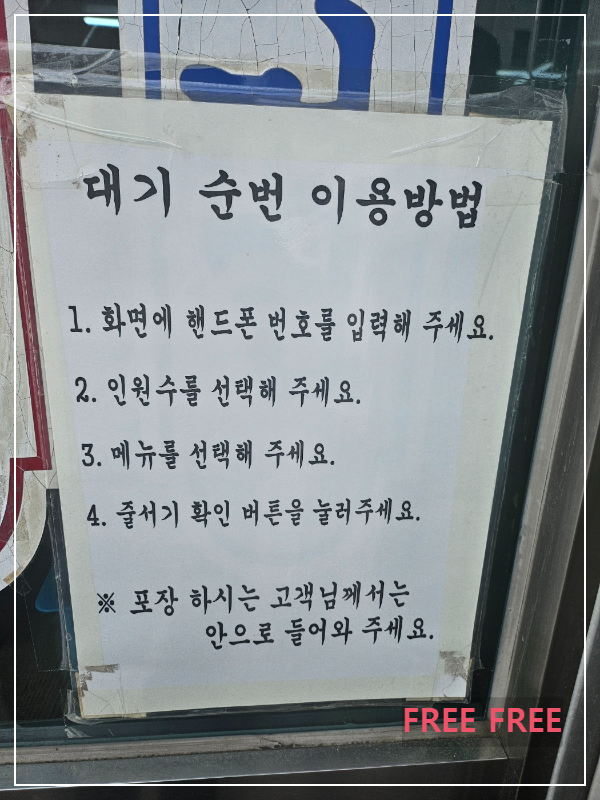 대기 순번 이용방법
1. 화면에 핸드폰 번호를 입력해 주세요.
2. 인원수를 선택해 주세요.
3. 메뉴를 선택해 주세요.
4. 줄서기 확인 버튼을 눌러주세요.
※ 포장 하시는 고객님께서는
안으로 들어와 주세요.
FREE FREE